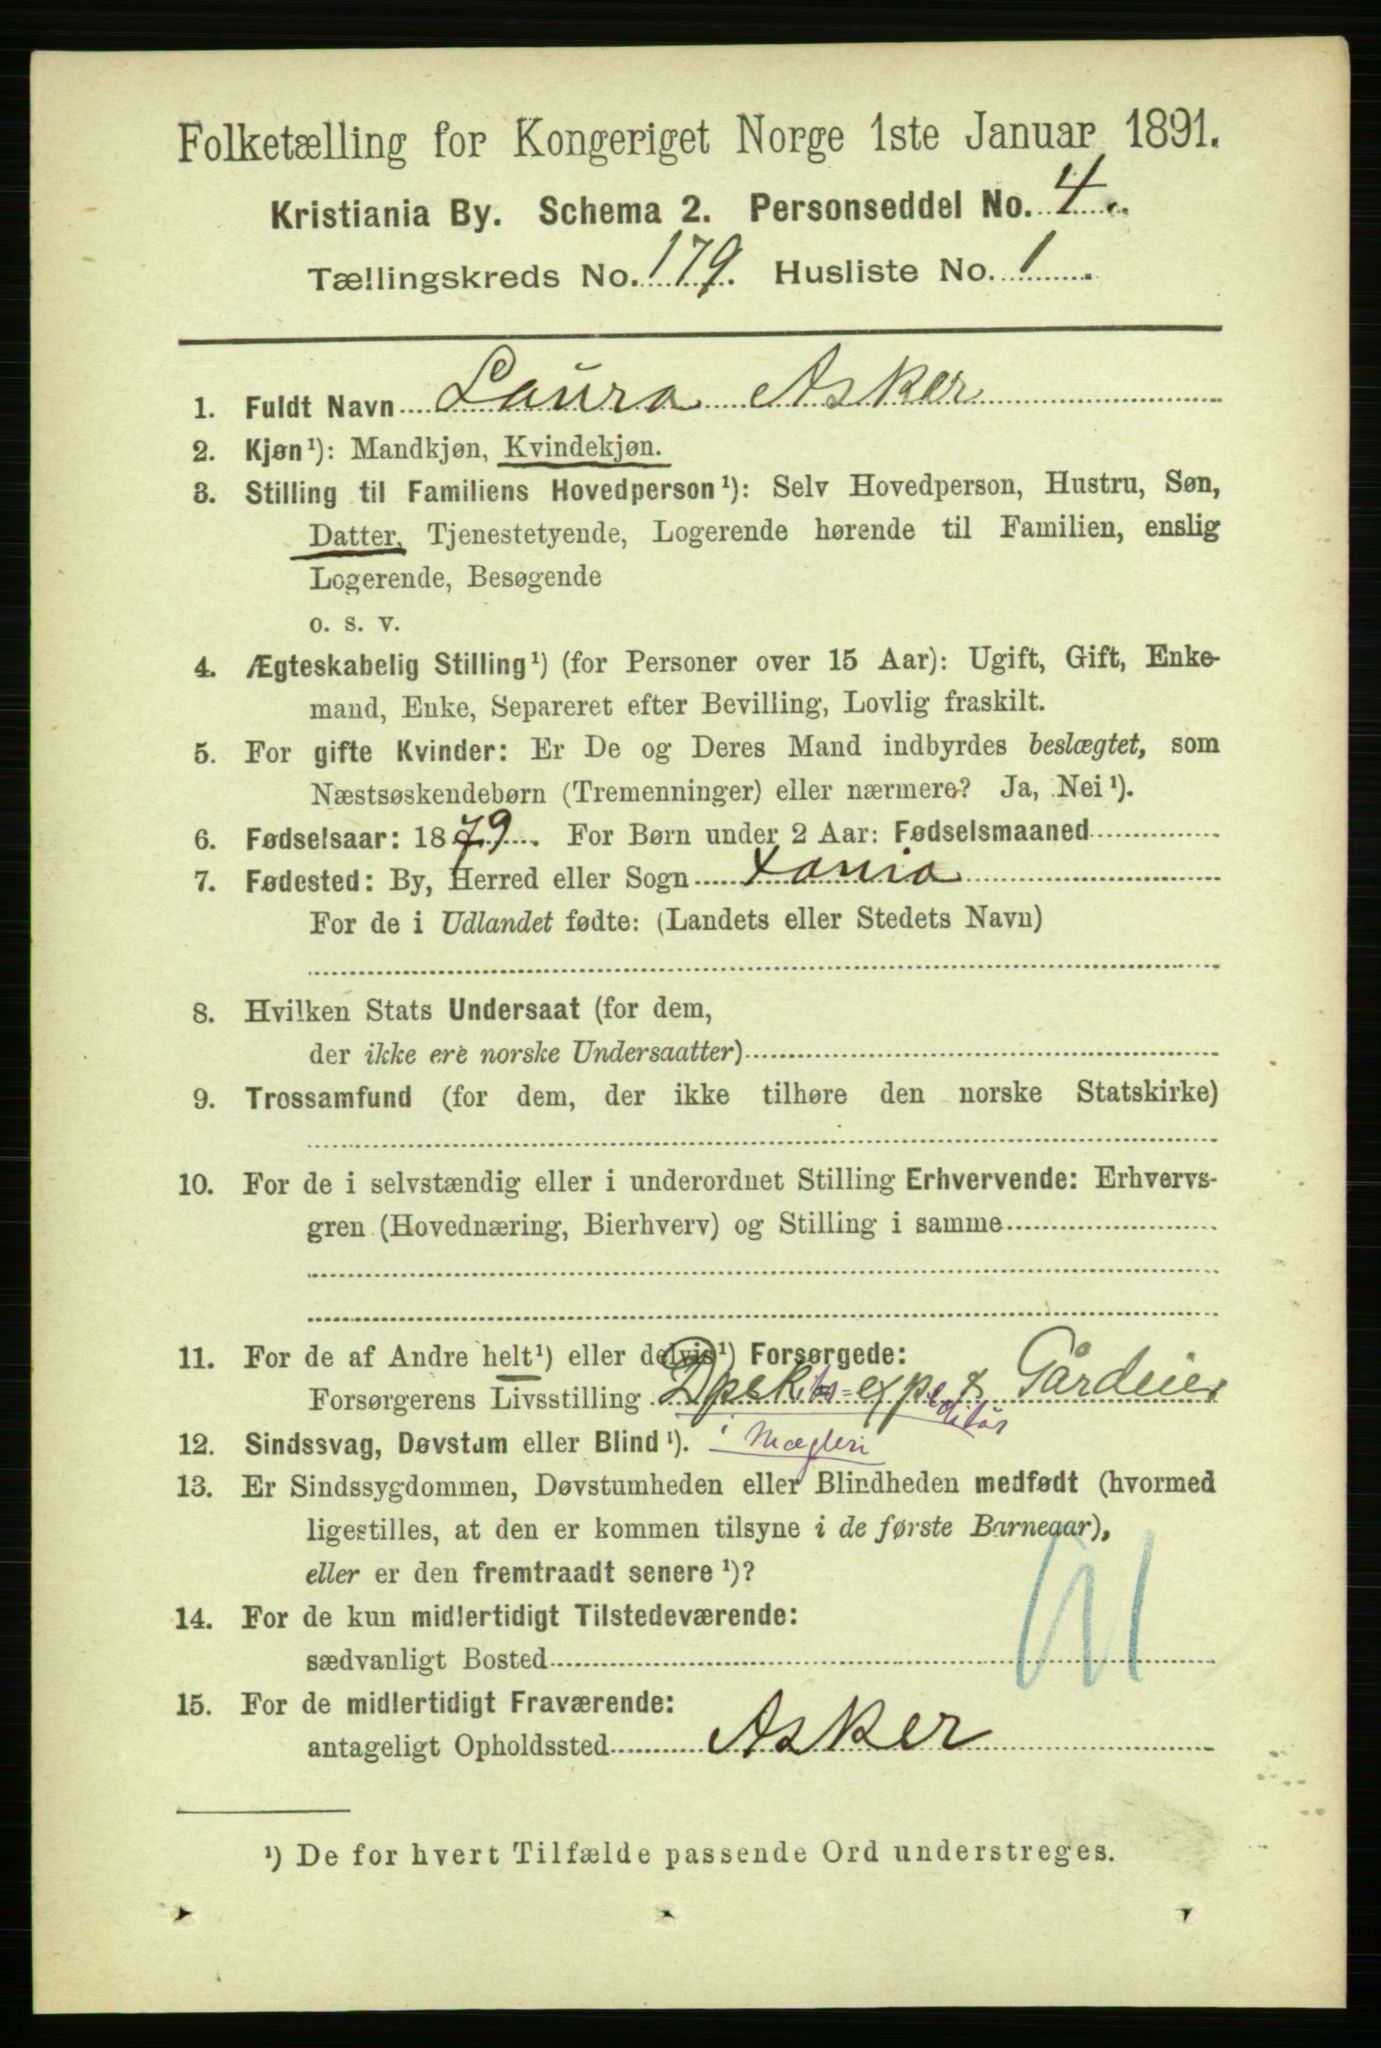 Folketælling for Kongeriget Norge 1ste Januar 1891.
Kristiania By. Schema 2. Personseddel No. 4.
Tællingskreds No. 179. Husliste No. 1
1. Fuldt Navn Laura Asker
2. Kjøn¹): Mandkjøn, Kvindekjøn.
3. Stilling til Familiens Hovedperson¹): Selv Hovedperson, Hustru, Søn,
Datter, Tjenestetyende, Logerende hørende til Familien, enslig
Logerende, Besøgende
o. s. v.
4. Ægteskabelig Stilling¹) (for Personer over 15 Aar): Ugift, Gift, Enke-
mand, Enke, Separeret efter Bevilling, Lovlig fraskilt.
5. For gifte Kvinder: Er De og Deres Mand indbyrdes beslægtet, som
Næstsøskendebørn (Tremenninger) eller nærmere? Ja, Nei¹).
6. Fødselsaar: 1879. For Børn under 2 Aar: Fødselsmaaned
7. Fødested: By, Herred eller Sogn Xania
For de i Udlandet fødte: (Landets eller Stedets Navn)
8. Hvilken Stats Undersaat (for dem,
der ikke ere norske Undersaatter)
9. Trossamfund (for dem, der ikke tilhøre den norske Statskirke)
10. For de i selvstændig eller i underordnet Stilling Erhvervende: Erhvervs-
gren (Hovednæring, Bierhverv) og Stilling i samme
11. For de af Andre helt¹) eller delvis¹) Forsørgede:
Forsørgerens Livsstilling Dpskibs=exp & Gårdeier
editør
12. Sindssvag, Døvstum eller Blind¹). i Mægleri
13. Er Sindssygdommen, Døvstumheden eller Blindheden medfødt (hvormed
ligestilles, at den er kommen tilsyne i de første Barneaar),
eller er den fremtraadt senere¹)?
14. For de kun midlertidigt Tilstedeværende:
sædvanligt Bosted
15. For de midlertidigt Fraværende:
antageligt Opholdssted Asker
¹) De for hvert Tilfælde passende Ord understreges.